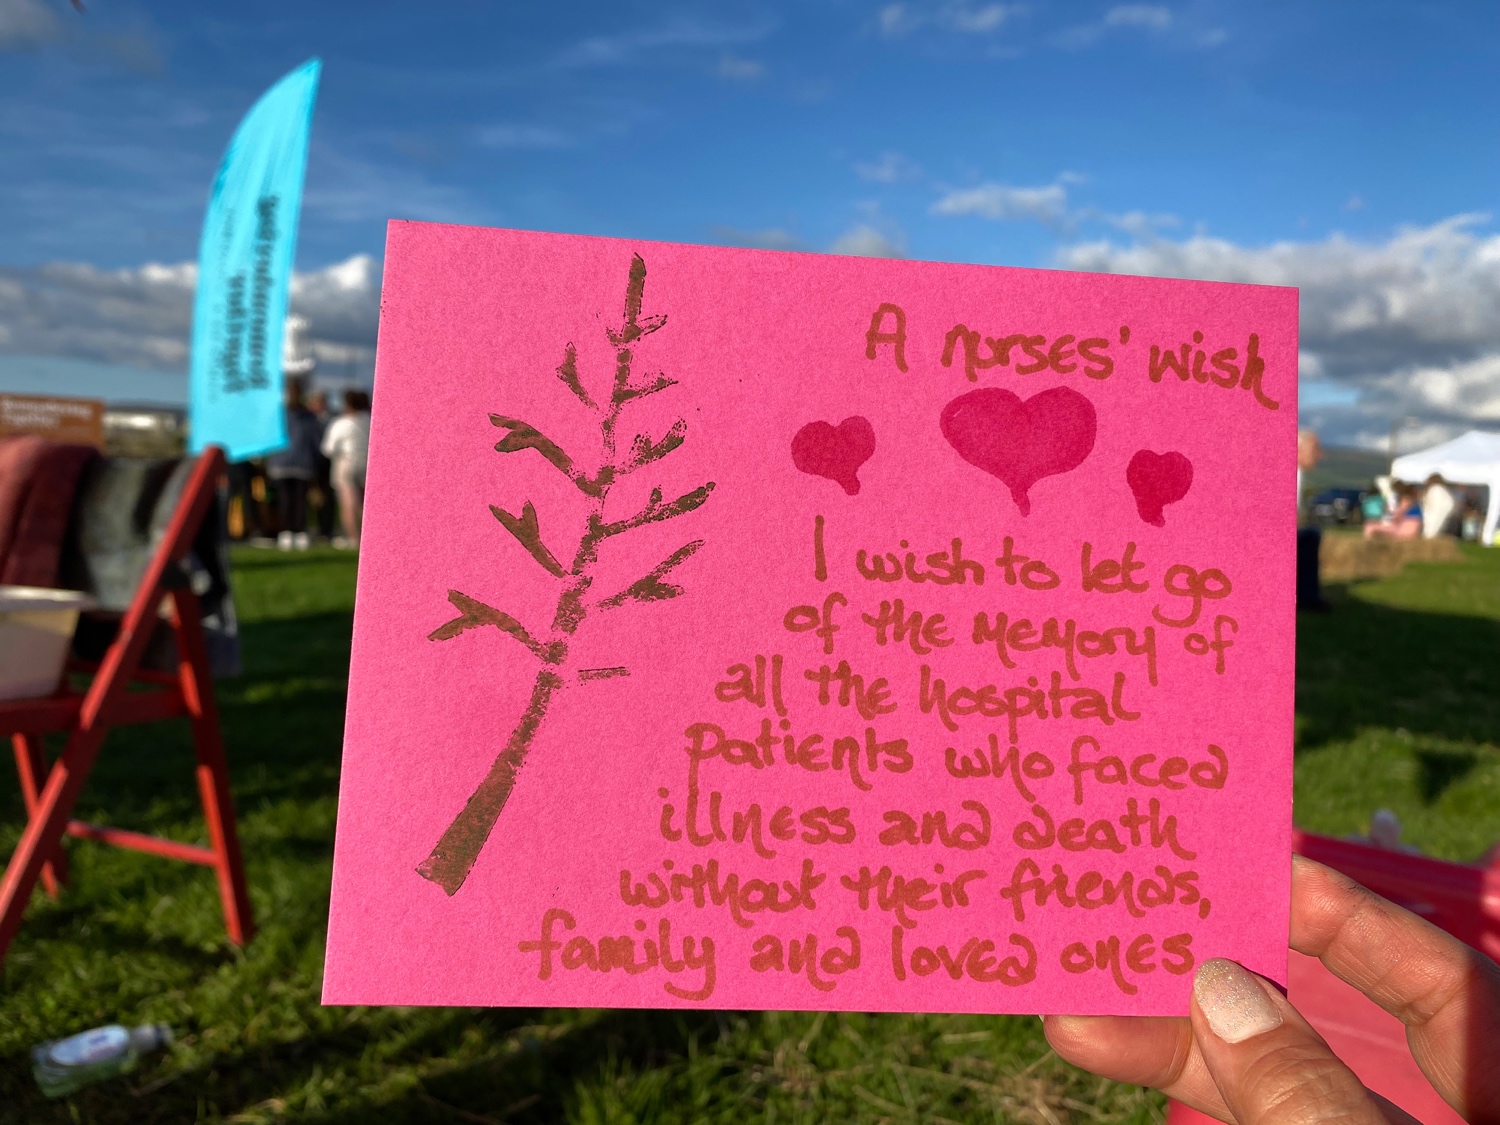 A nurses' wish
I wish to let go
of the memory of
all the hospital
patients who faced
illness and death
without their friends,
family and loved ones.